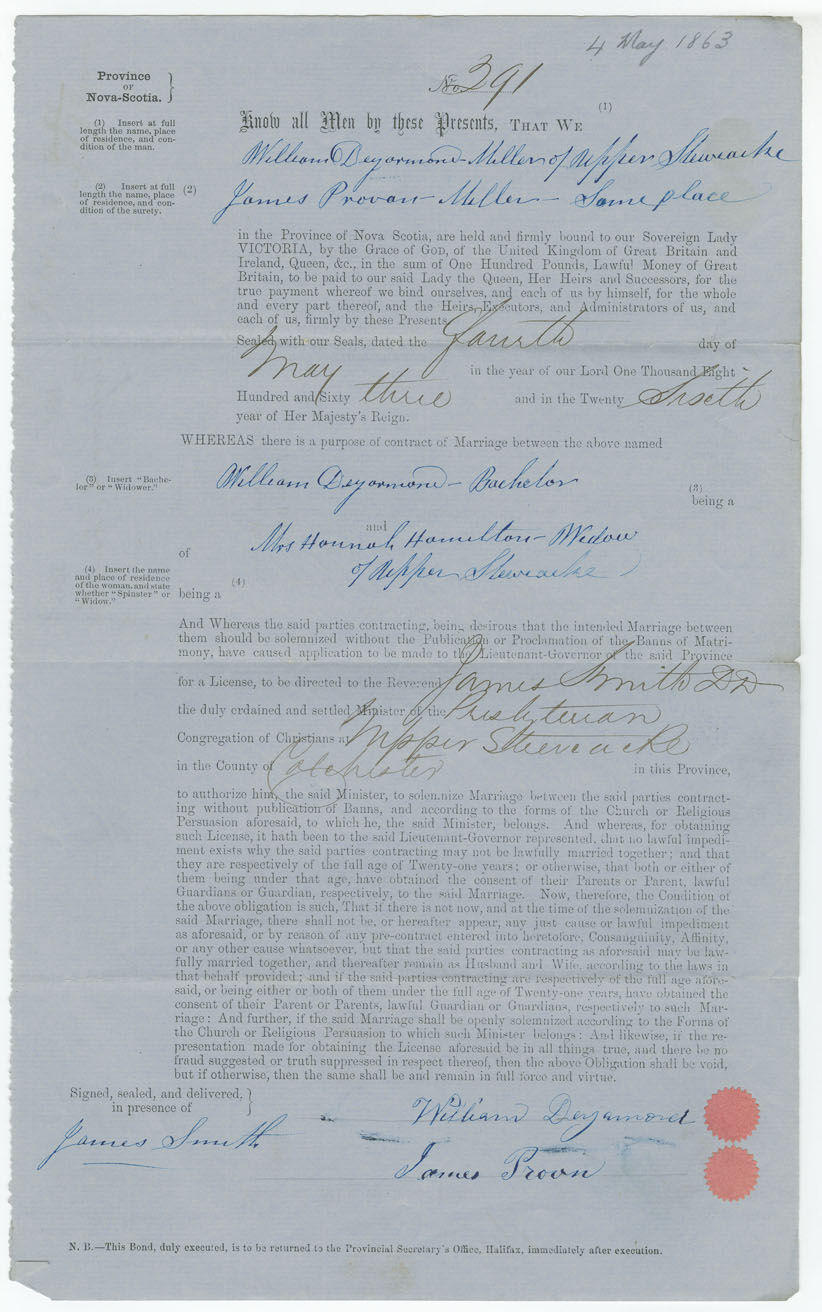 4 May 1863
Province
OF
Nova-Scotia.
No. 391
(1)
(1) Insert at full
length the name, place
of residence, and con-
dition of the man.
Know all Men by these Presents, THAT WE
William Deyarmond - Miller of Upper Stewiacke
(2) Insert at full
length the name, place
of residence, and con-
dition of the surety.
(2)
James Provan - Miller - Same place
in the Province of Nova Scotia, are held and firmly bound to our Sovereign Lady
VICTORIA, by the Grace of GOD, of the United Kingdom of Great Britain and
Ireland, Queen, &c., in the sum of One Hundred Pounds, Lawful Money of Great
Britain, to be paid to our said Lady the Queen, Her Heirs and Successors, for the
true payment whereof we bind ourselves, and each of us by himself, for the whole
and every part thereof, and the Heirs, Executors, and Administrators of us, and
each of us, firmly by these Presents.
Sealed with our Seals, dated the fourth day of
May in the year of our Lord One Thousand Eight
Hundred and Sixty three and in the Twenty Sixth
year of Her Majesty's Reign.
WHEREAS there is a purpose of contract of Marriage between the above named
(3) Insert "Bache-
lor" or "Widower."
William Deyarmond - Bachelor
(3)
being a
and
of Mrs Hannah Hamilton - Widow
of Upper Stewiacke
(4) Insert the name
and place of residence
of the woman, and state
whether "Spinster" or
"Widow."
(4)
being a
And Whereas the said parties contracting, being desirous that the intended Marriage between
them should be solemnized without the Publication or Proclamation of the Banns of Matri-
mony, have caused application to be made to the Lieutenant-Governor of the said Province
for a License, to be directed to the Reverend James Smith DD
the duly ordained and settled Minister of the Presbyterian
Congregation of Christians at Upper Stewiacke
in the County of Colchester in this Province,
to authorize him, the said Minister, to solemnize Marriage between the said parties contract-
ing without publication of Banns, and according to the forms of the Church or Religious
Persuasion aforesaid, to which he, the said Minister, belongs. And whereas, for obtaining
such License, it hath been to the said Lieutenant-Governor represented, that no lawful impedi-
ment exists why the said parties contracting may not be lawfully married together; and that
they are respectively of the full age of Twenty-one years; or otherwise, that both or either of
them being under that age, have obtained the consent of their Parents or Parent, lawful
Guardians or Guardian, respectively, to the said Marriage. Now, therefore, the Condition of
the above obligation is such, That if there is not now, and at the time of the solemnization of the
said Marriage, there shall not be, or hereafter appear, any just cause or lawful impediment
as aforesaid, or by reason of any pre-contract entered into heretofore, Consanguinity, Affinity,
or any other cause whatsoever, but that the said parties contracting as aforesaid may be law-
fully married together, and thereafter remain as Husband and Wife, according to the laws in
that behalf provided; and if the said parties contracting are respectively of the full age afore-
said, or being either or both of them under the full age of Twenty-one years, have obtained the
consent of their Parent or Parents, lawful Guardian or Guardians, respectively to such Mar-
riage: And further, if the said Marriage shall be openly solemnized according to the Forms of
the Church or Religious Persuasion to which such Minister belongs: And likewise, if the re-
presentation made for obtaining the License aforesaid be in all things true, and there be no
fraud suggested or truth suppressed in respect thereof, then the above Obligation shall be void,
but if otherwise, then the same shall be and remain in full force and virtue.
Signed, sealed, and delivered,
in presence of
William Deyamond
James Smith
James Provn
N. B.—This Bond, duly executed, is to be returned to the Provincial Secretary's Office, Halifax, immediately after execution.